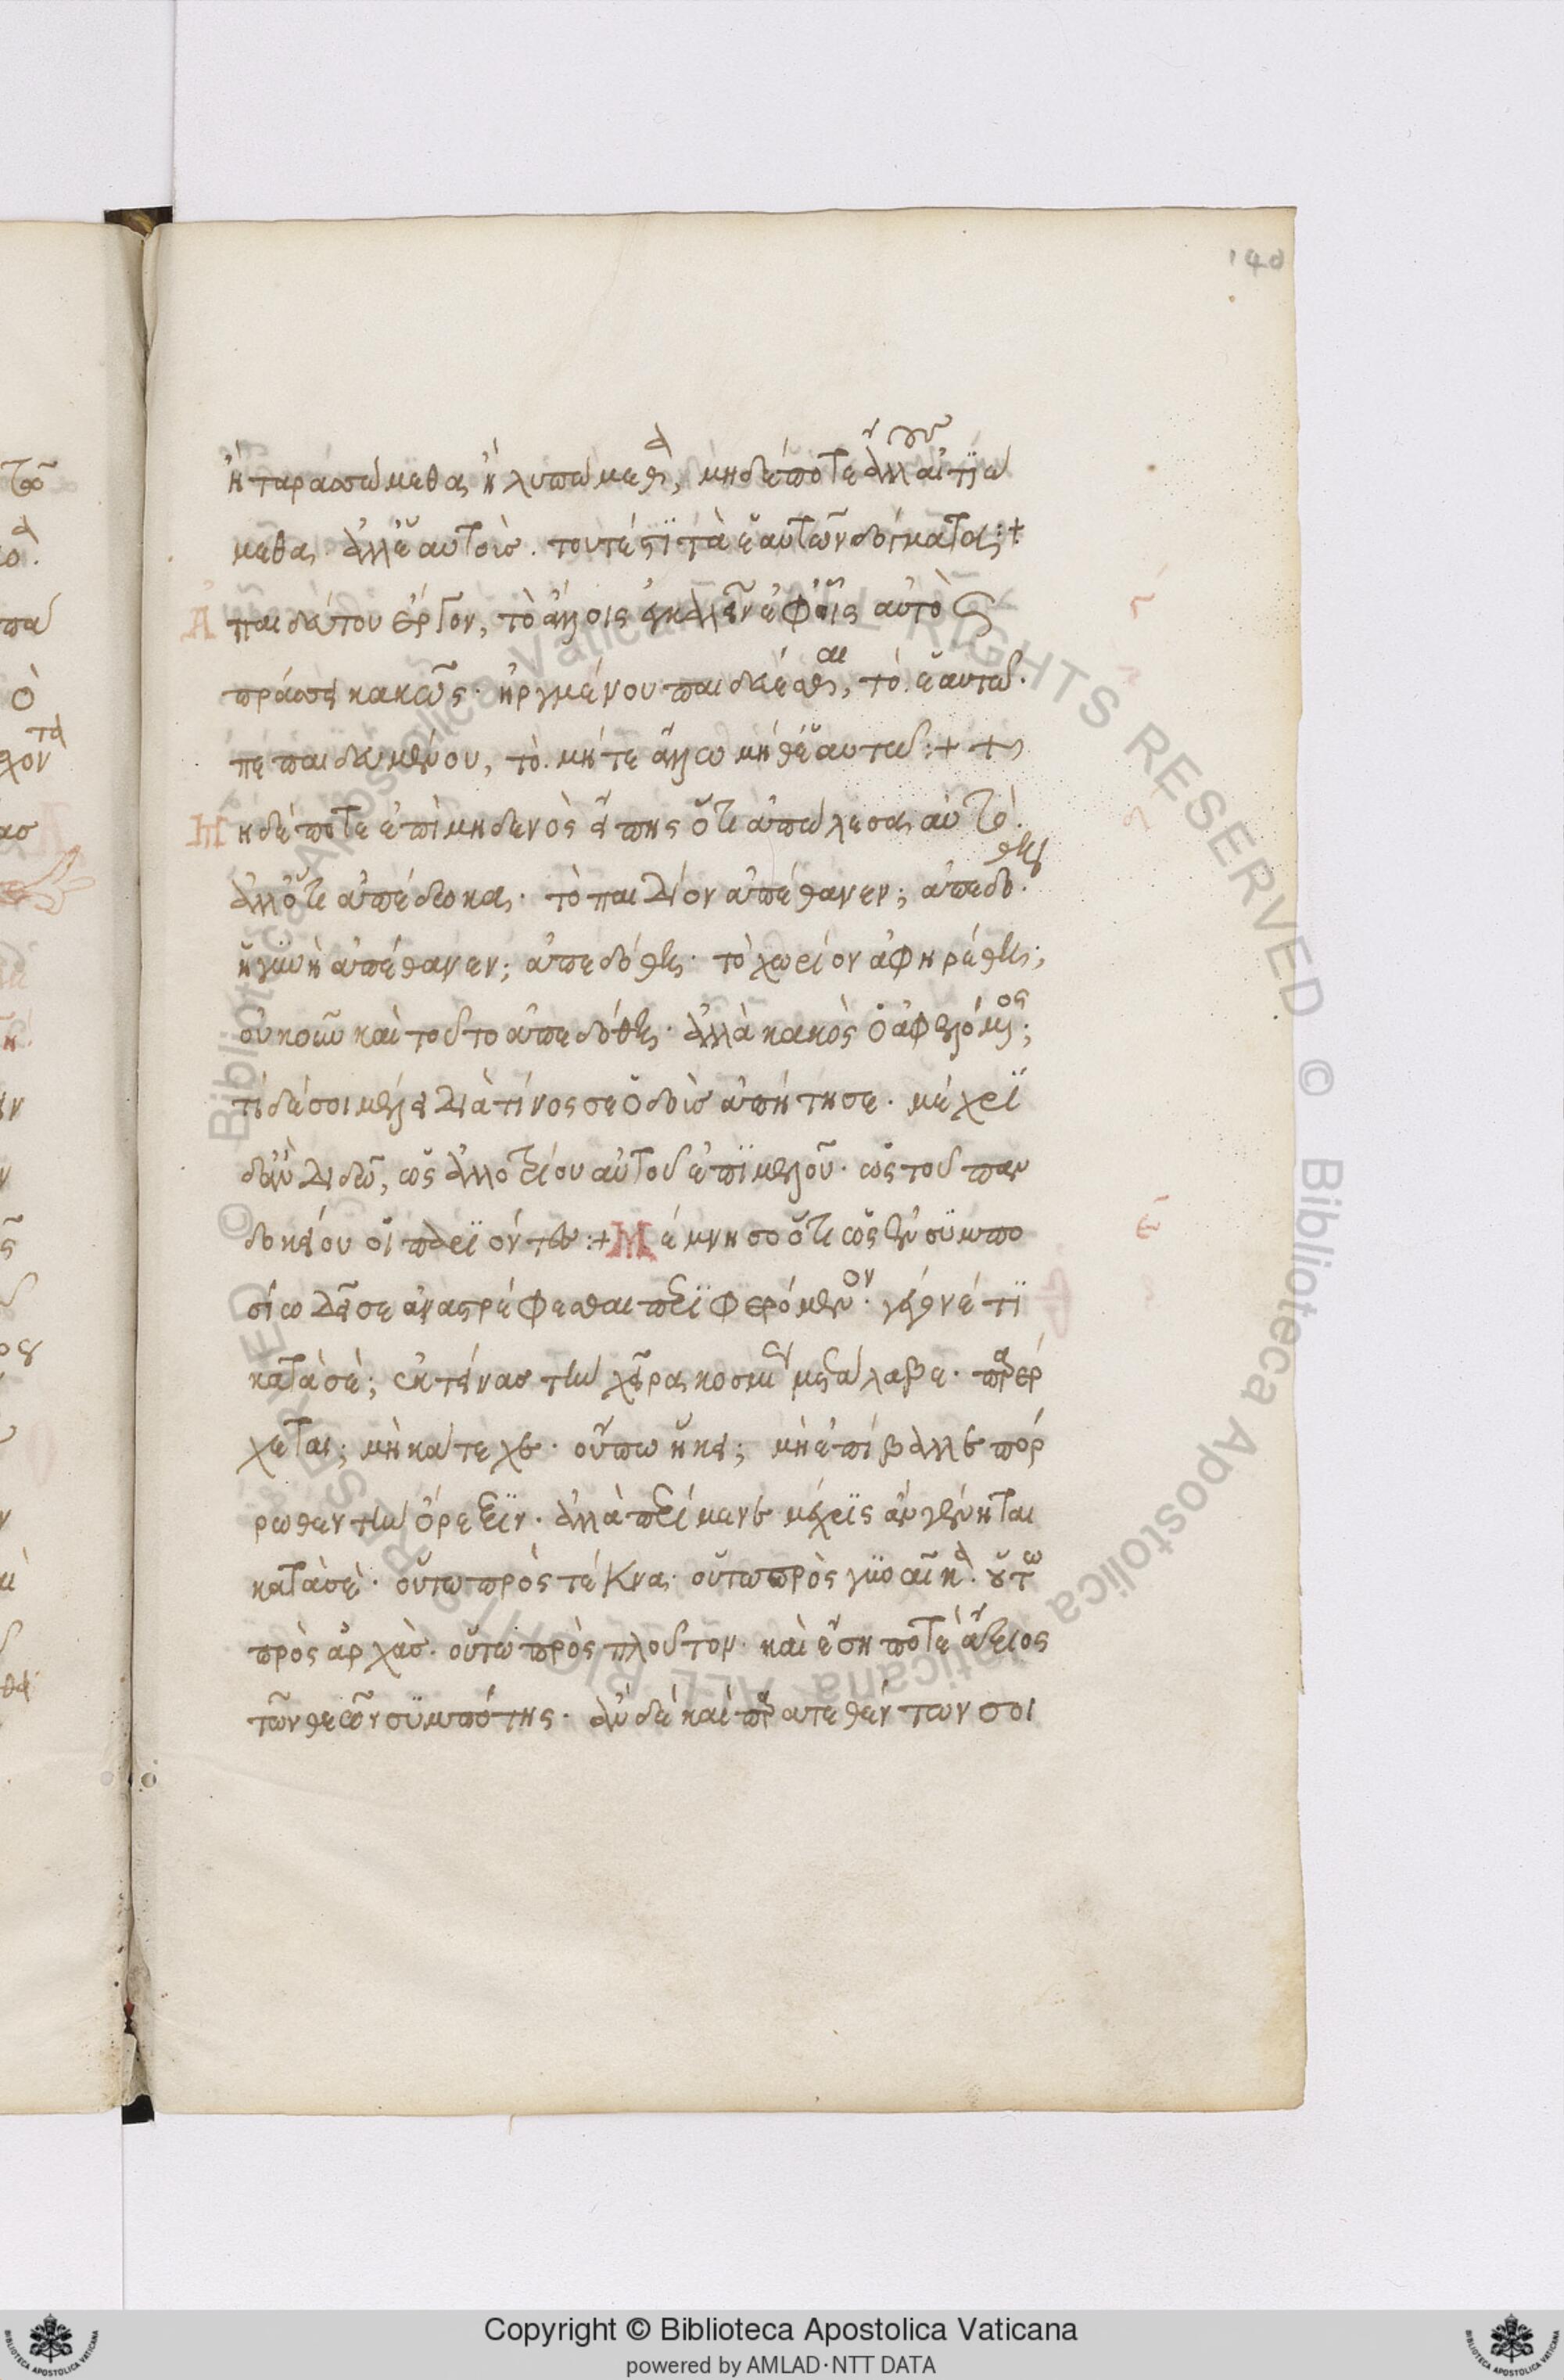 140
ἢ ταρασσώμεθα ἢ λυπώμεθα, μηδέποτε ἄλλον αἰτιώ
μεθα ἀλλ' ἑαυτοὺς. τουτέστι τὰ ἑαυτῶν δόγματα :+
Ἀπαιδεύτου ἔργον, τὸ ἄλλοις ἐγκαλεῖν ἐφ' οἷς αὐτὸς
πράσσει κακῶς· ἠργμένου παιδεύεσθαι, τὸ ἑαυτῶ·
πεπαιδευμένου, τὸ μήτε ἄλλω μήθ' ἑαυτῶ :+
Μηδέποτε ἐπὶ μηδενὸς εἴπης ὅτι ἀπώλεσα αὐτό.
ἀλλ' ὅτι ἀπέδωκα· τὸ παιδίον ἀπέθανεν; ἀπεδόθη·
ἡ γυνὴ ἀπέθανεν; ἀπεδόθη· τὸ χωρίον ἀφηρέθη;
οὐκοῦν καὶ τοῦτο ἀπεδόθη· ἀλλὰ κακὸς ὁ ἀφελόμενος;
τί δέ σοι μέλει διὰ τίνος σε ὁ δοὺς ἀπήτησε· μέχρι
δ' ἂν διδῶ, ὡς ἀλλοτρίου αὐτοῦ ἐπιμελοῦ· ὡς τοῦ παν
δοκείου οἱ παριόντες :+ Μέμνησο ὅτι ὡς ἐν συμπο
σίω δεῖ σε ἀναστρέφεσθαι περιφερόμενον· γέγονέ τι
κατὰ σέ; ἐκτείνας τὴν χεῖρα κοσμίως μετάλαβε· παρέρ
χεται; μὴ κάτεχε· οὔπω ἥκει; μὴ ἐπίβαλλε πόρ
ρωθεν τὴν ὄρεξιν· ἀλλὰ περίμενε μέχρις ἂν γένηται
κατὰ σὲ· οὕτω πρὸς τέκνα· οὕτω πρὸς γυναῖκα· οὕτω
πρὸς ἀρχὰς· οὕτω πρὸς πλοῦτον· καὶ ἔση ποτὲ ἄξιος
τῶν θεῶν συμπότης· ἂν δὲ καὶ παρατεθέντων σοι
Copyright © Biblioteca Apostolica Vaticana
powered by AMLAD·NTT DATA
© Biblioteca Apostolica Vaticana ALL RIGHTS RESERVED